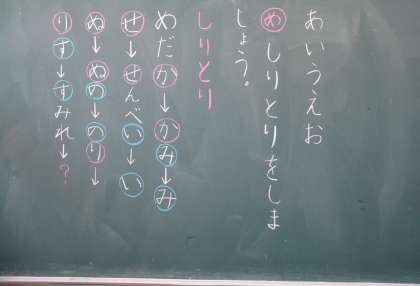 あいうえお
めしりとりをしま
しょう。
しりとり
めだか→かみ→み
せ→せんべい→い
ぬ→ぬの→のり→
りす→すみれ→?